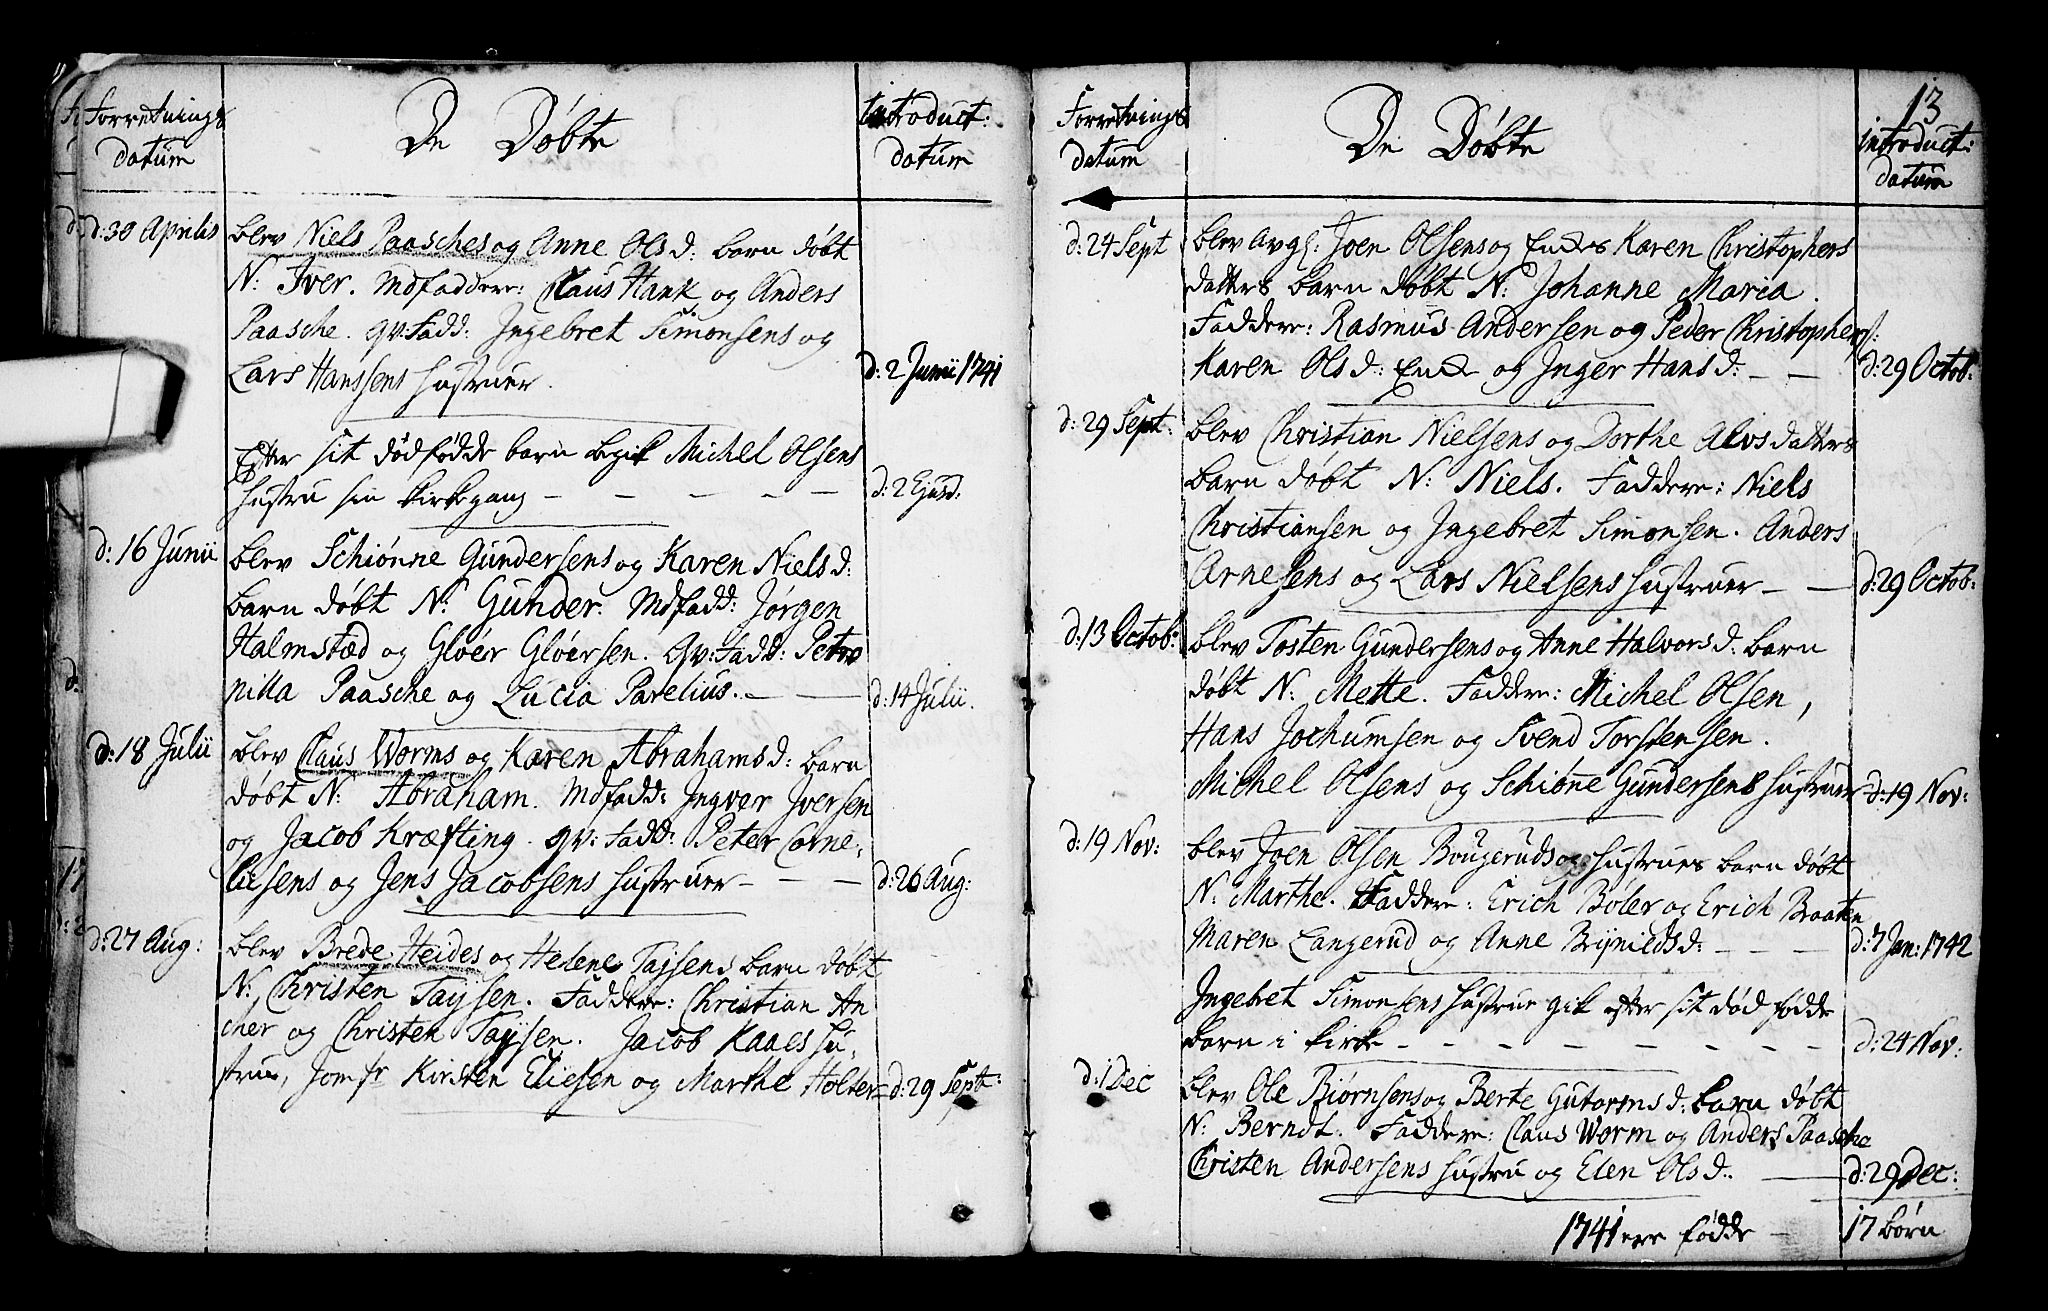 Forretnings
datum
De Døbte
introduct:
datum
d: 30 Aprilis
blev Niels Paasches og Anne Olsd: barn døbt
N: Iver. Mdfaddere: Claus Hank og Anders
Paasche. qv: Fadd: Ingebret Simonsens og
Lars Hanssens hustruer.
d: 2 Junii 1741
Efter sit dødfødde barn begik Michel Olsens
hustru sin kirkegang – – – – –
d: 2 Ejusd:
d: 16 Junii
blev Schiønne Gundersens og Karen Nielsd:
barn døbt N: Gunder. Mdfadd: Jørgen
Halmstæd og Gløer Gløersen. qv: Fadd: Petro
nilla Paasche og Lucia Parelius. – –
d: 14 Julii.
d: 18 Julii
blev Claus Worms og Karen Abrahamsd: barn
døbt N: Abraham. Mdfadd: Ingvar Iversen
og Jacob Kræfting. qv: Fadd: Peter Corne,
liisens og Jens Jacobsens hustruer – – –
d: 26 Aug:
d: 27 Aug:
blev Brede Heides og Helene Taysens barn døbt
N: Christen Taysen. Faddere: Christian An
cher og Christen Taysen. Jacob Kaaes hu,
strue, Jomfr Kirsten Eliesen og Marthe Holter
d: 29 Sept:
13
Forretnings
datum
De Døbte
introduct:
datum
d: 24 Sept
blev Avgl: Joen Olsens og Enkes Karen Christophers
datters barn døbt N: Johanne Maria.
Faddere: Rasmus Andersen og Peder Christophers:
Karen Olsd: Enke og Inger Hansd: – –
d: 29 Octob:
d: 29 Sept:
blev Christian Nielsens og Dorthe Alvsdatters
barn døbt N: Niels. Faddere: Niels
Christiansen og Ingebret Simonsen. Anders
Arnesens og Lars Nielsens hustruer – –
d: 29 Octob:
d: 13 Octob:
blev Tosten Gundersens og Anne Halvorsd: barn
døbt N: Mette. Faddere: Michel Olsen,
Hans Jochumsen og Svend Torstensen.
Michel Olsens og Schiøne Gundersens hustruer
d: 19 Nov:
d: 19 Nov:
blev Joen Olsen Bougeruds og hustrues barn døbt
N: Marthe. Faddere: Erich Bøler og Erich Braaten
Maren Langerud og Anne Brynildsd: – – –
d: 7 Jan: 1742
Ingebret Simonsens hustrue gik efter sit død fødde
barn i kirke – – – – – – – –
d: 24 Nov:
d: 1 Dec
blev Ole Biørnsens og Berte Gutormsd: barn døbt
N: Berndt. Faddere: Claus Worm og Anders Paasche
Christen Andersens hustru og Elen Olsd: –
d: 29 Dec:
1741 ere fødde – 17 børn